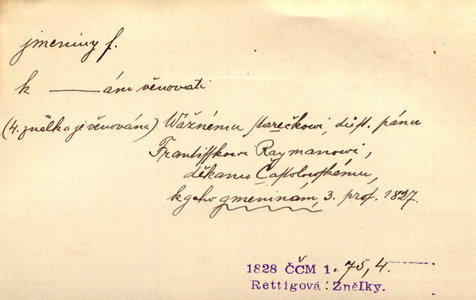 jmeniny f.
k ——ám věnovati
(4. znělka je věnována) Wážnému starečkowi, důst. pánu
Františkowi Raymanowi,
děkanu Častolowskému,
k geho gmeninám, 3. pros. 1827.
1828 ČČM 1. 75, 4.
Rettigová: Znělky.